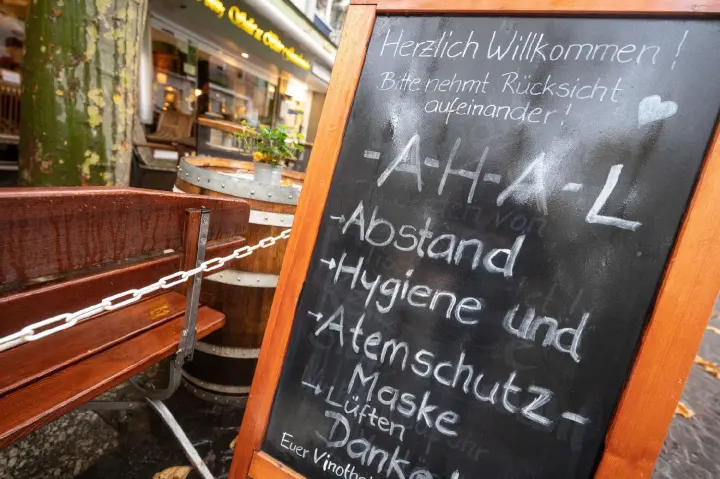 Herzlich Willkommen!
Bitte nehmt Rücksicht
aufeinander!
-A-H-A-L
→Abstand
→Hygiene und
→Atemschutz-
Maske
→Lüften
Danke
Euer